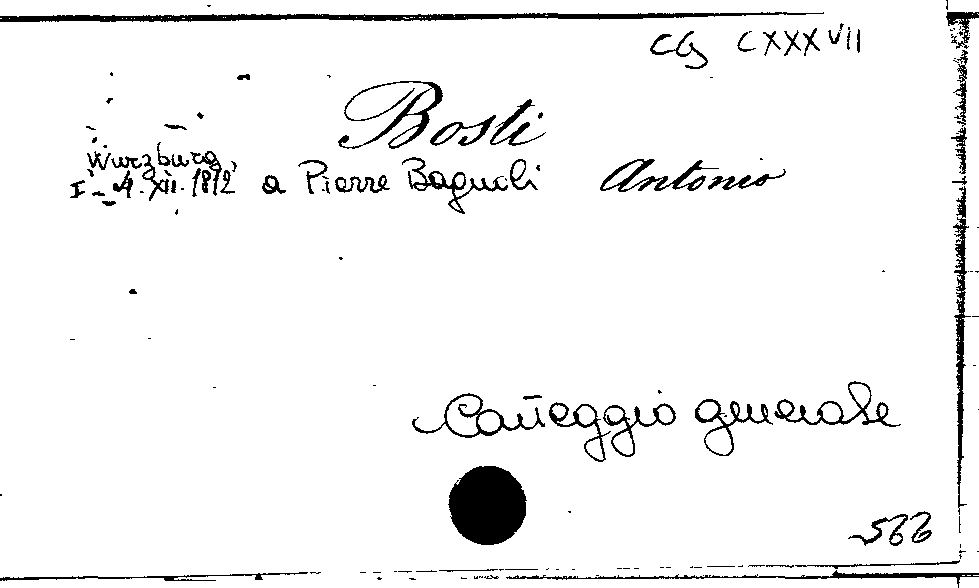 CG CXXXVII
Bosti
Wurzburg,
I - 4. XII. 1812 a Pierre Bagnoli Antonio
Carteggio generale
566